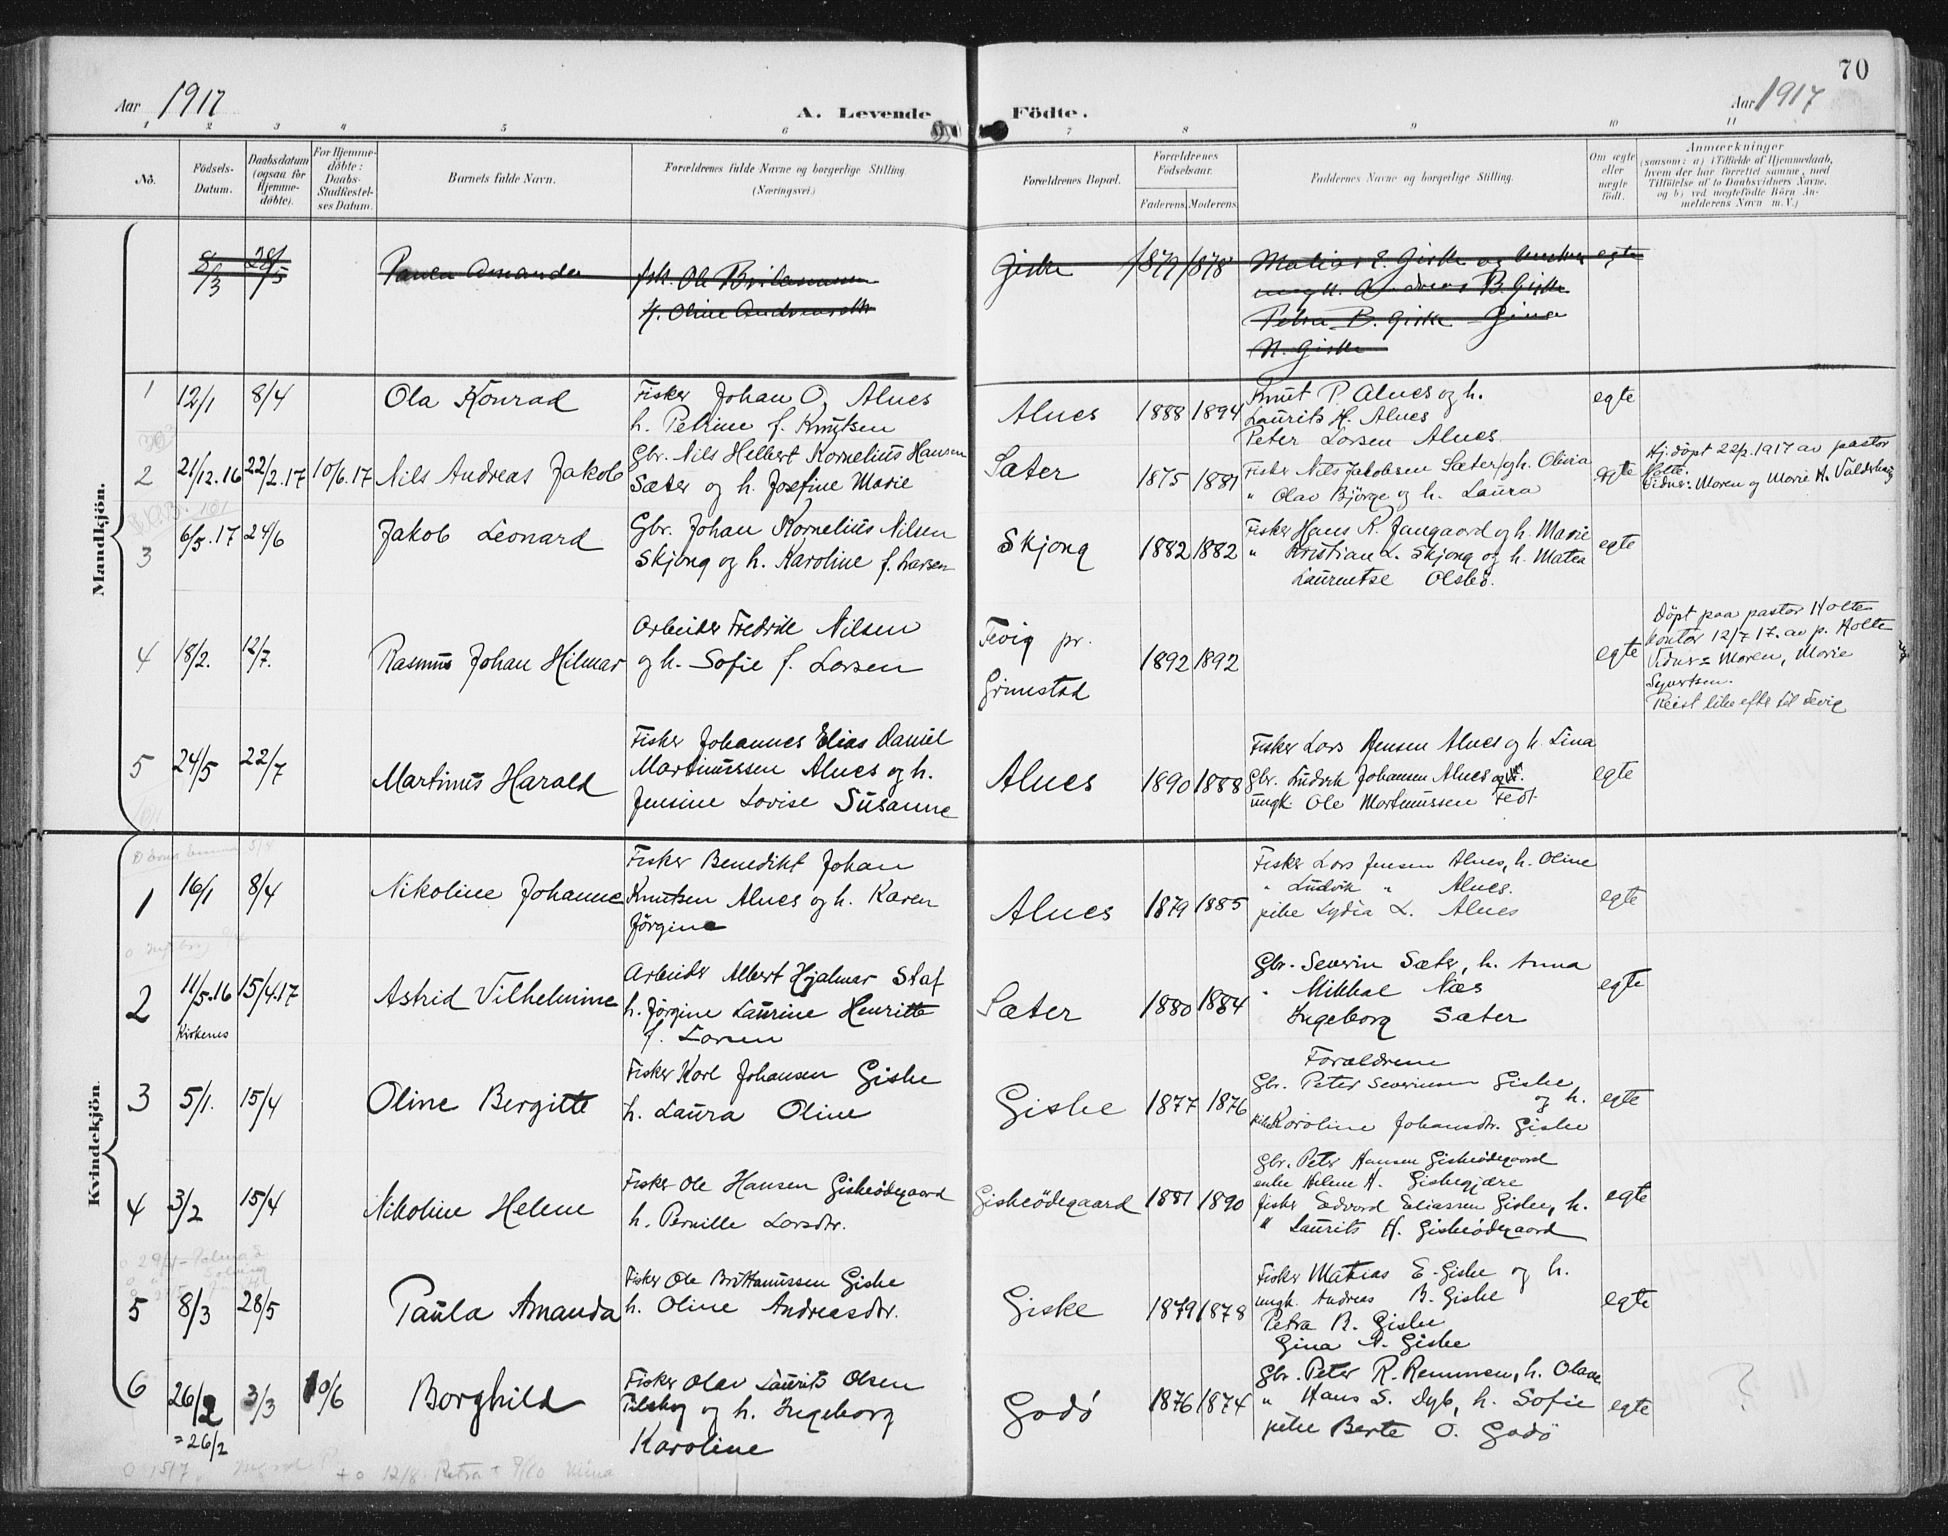 70
Aar 1917
A. Levende Födte.
Aar 1917
1 2 3 4 5 6 7 8 9 10 11
No.
Födsels-
Datum.
Daabsdatum
(ogsaa for
Hjemme-
døbte).
For Hjemme-
døbte:
Daabs-
Stadfæstel-
ses Datum.
Barnets fulde Navn.
Forældrenes fulde Navne og borgerlige Stilling.
(Næringsvei.)
Forældrenes Bopæl.
Forældrenes
Födselsaar.
Faderens. Moderens.
Faddernes Navne og borgerlige Stilling.
Om ægte
eller
uægte
født.
Anmærkninger
(saasom: a) i Tilfælde af Hjemmedaab,
hvem der har forrettet samme, med
Tilföielse af to Daabsvidners Navne,
og b) ved uægtefödte Börn An-
melderens Navn m. V.)
Mandkjön.
8/3 28/5 Paula Amanda
Giske 1879 1878
egte
Petra B. Giske Gina
N. Giske
1 12/1 8/4 Ola Konrad
Fisker Johan O. Alnes
h. Petrine f. Knutsen
Alnes 1888 1894
Knut P. Alnes og h.
Laurits H. Alnes
Peter Larsen Alnes
egte
2 21/12.16 22/2.17 10/6.17 Nils Andreas Jakob
Gbr. Nils Helbert Kornelius Hansen
Sæter og h. Josefine Marie
Sæter 1875 1881
Fisker Nils Jakobsen Sæter og h. Olivia
" Olav Bjørge og h. Laura
egte
Hj. döpt 22/2 1917 av pastor
Holte.
Vidner: Moren og Marie H. Valderhaug
3 6/5.17 24/6 Jakob Leonard
Gbr. Johan Kornelius Nilsen
Skjong og h. Karoline f. Larsen
Skjong 1882 1882
Fisker Hans K. Jangaard og h. Marie
" Kristian L. Skjong og h. Matea
Laurentse
egte
4 18/2. 12/7. Rasmus Johan Hilmar
Arbeider Fredrik Nilsen
og h. Sofie f. Larsen
Fevig pr.
Grimestad
1892 1892
egte
Döpt paa pastor Holtes
kontor 12/7 17. av p. Holte
Vidner: Moren, Marie
Syvertsen.
Reist like efter til Fevig
5 24/5 22/7 Martinus Harald
Fisker Johannes Elias Daniel
Martinussen Alnes og h.
Jensine Lovise Susanne
Alnes 1890 1888
Fisker Lars Jensen Alnes og h. Lina
Gbr. Ludvik Johansen Alnes og h.
ungk. Ole Martinussen
egte
Kvindekjön.
1 16/1 8/4 Nikoline Johanne
Fisker Benedikt Johan
Knutsen Alnes og h. Karen
Jörgine
Alnes 1879 1885
Fisker Lars Jensen Alnes, h. Oline
" Ludvik " Alnes.
pike Lydia L. Alnes
egte
2 11/5.16 15/4.17 Astrid Vilhelmine
Kirkenes
Arbeider Albert Hjalmar Staf
h. Jörgine Laurine Henritte
f. Larsen
Sæter 1880 1884
Gbr. Severin Sæter, h. Anna
" Mikkal Næs
Ingeborg Sæter
egte
3 5/1. 15/4 Oline Bergitte
Fisker Karl Johansen Giske
h. Laura Oline
Giske 1877 1876
Forældrene
Gbr. Peter Severinsen Giske
og h.
pike Karoline Johansdr. Giske
egte
4 3/2 15/4 Nikoline Helene
Fisker Ole Hansen Giskeødegaard
h. Pernille Larsdr.
Giskeødegaard 1881 1890
Gbr. Peter Hansen Giskeødegaard
enke Helene H. Giskegjære
fisker Edvard Eliassen Giske, h.
" Laurits H. Giskeødegaard
egte
5 8/3 28/5 Paula Amanda
Fisker Ole Brittanussen Giske
h. Oline Andreasdr.
Giske 1879 1878
Fisker Matias E. Giske og h.
ungk. Andreas B. Giske
Petra B. Giske
Gina N. Giske
egte
6 26/2 3/3 10/6 Borghild
= 26/2
Fisker Olav Laurits Olsen
og h. Ingeborg
Karoline
Godö 1876 1874
Gbr. Peter R. Remmen, h. Olave
" Hans S. Dyb, h. Sofie
pike Berte O. Godö
egte
?
12/8 Petra